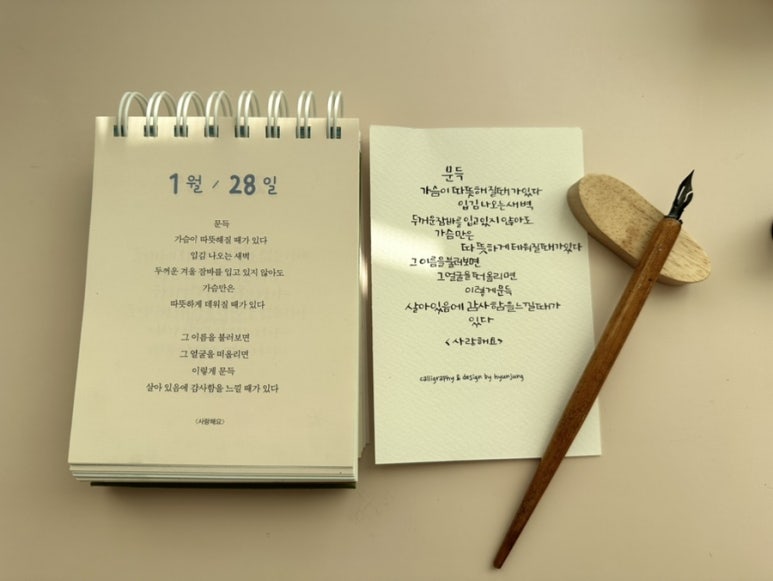 1월 / 28일
문득
가슴이 따뜻해질 때가 있다
입김 나오는 새벽
두꺼운 겨울 잠바를 입고 있지 않아도
가슴만은
따뜻하게 데워질 때가 있다
그 이름을 불러보면
그 얼굴을 떠올리면
이렇게 문득
살아 있음에 감사함을 느낄 때가 있다
<사랑해요>
문득
가슴이 따뜻해질때가있다
입김나오는새벽
두꺼운잠바를입고있지않아도
가슴만은
따뜻하게데워질때가있다
그이름을불러보면
그얼굴을떠올리면
이렇게문득
살아있음에 감사함을느낄때가
있다
<사랑해요>
calligraphy & design by hyunjung